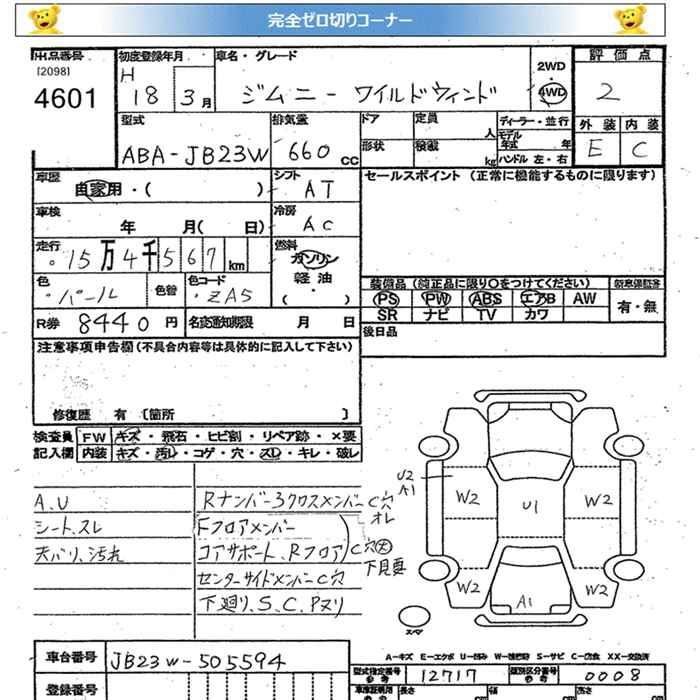 完全ゼロ切りコーナー
出品番号
[2098]
4601
初度登録年月
H
18 3月
車名・グレード
ジムニー ワイルドウィンド
2WD
・
4WD
評価点
2
外装 内装
E C
型式
ABA-JB23W
排気量
660 cc
ドア
定員
人
ディーラー・並行
モデル
年式 年
形状
積載
kg
ハンドル 左・右
車歴
自家用・( )
シフト
AT
セールスポイント (正常に機能するものに限ります)
車検
年 月( 日)
冷房
AC
走行
15万4千567 km
燃料
ガソリン
軽油
( ・ )
色
パール
色替
色コード
ZA5
装備品 (純正品に限り○をつけてください)
PS PW ABS エアB AW
SR ナビ TV カワ
有・無
R券 8440 円
名変通知期限 月 日
後日品
注意事項申告欄(不具合内容等は具体的に記入して下さい)
修復歴 有 [箇所 ]
検査員
記入欄
FW キズ・飛石・ヒビ割・リペア跡・×要
内装 キズ・汚レ・コゲ・穴・スレ・キレ・破レ
A.U
シート.スレ
天バリ、汚れ
Rナンバー3クロスメンバー C穴
オレ
Fフロアメンバー
コアサポート.Rフロア C穴大
下見要
センターサイドメンバーC穴
下廻り、S、C、Pヌリ
U2
A1
W2
U1
W2
W2
W2
A1
スペア
A-キズ E-エクボ U-凹み W-補修跡 S-サビ C-腐食 XX-交換済
車台番号 JB23W-505594
登録番号
型式指定番号
参考
12717
類別区分番号
参考
0008
長さ
cm
幅
cm
高さ